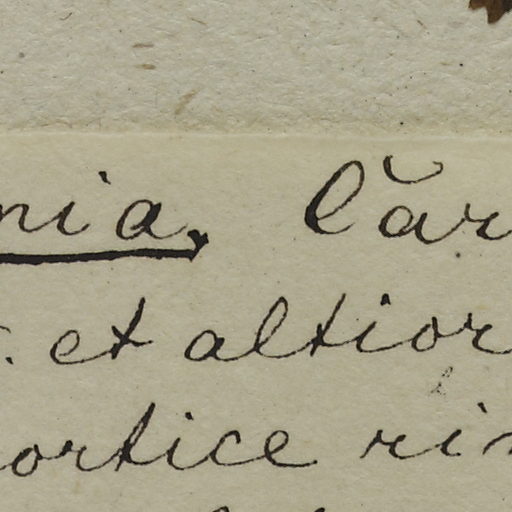 nia, Căr
. et altior
ortice ri